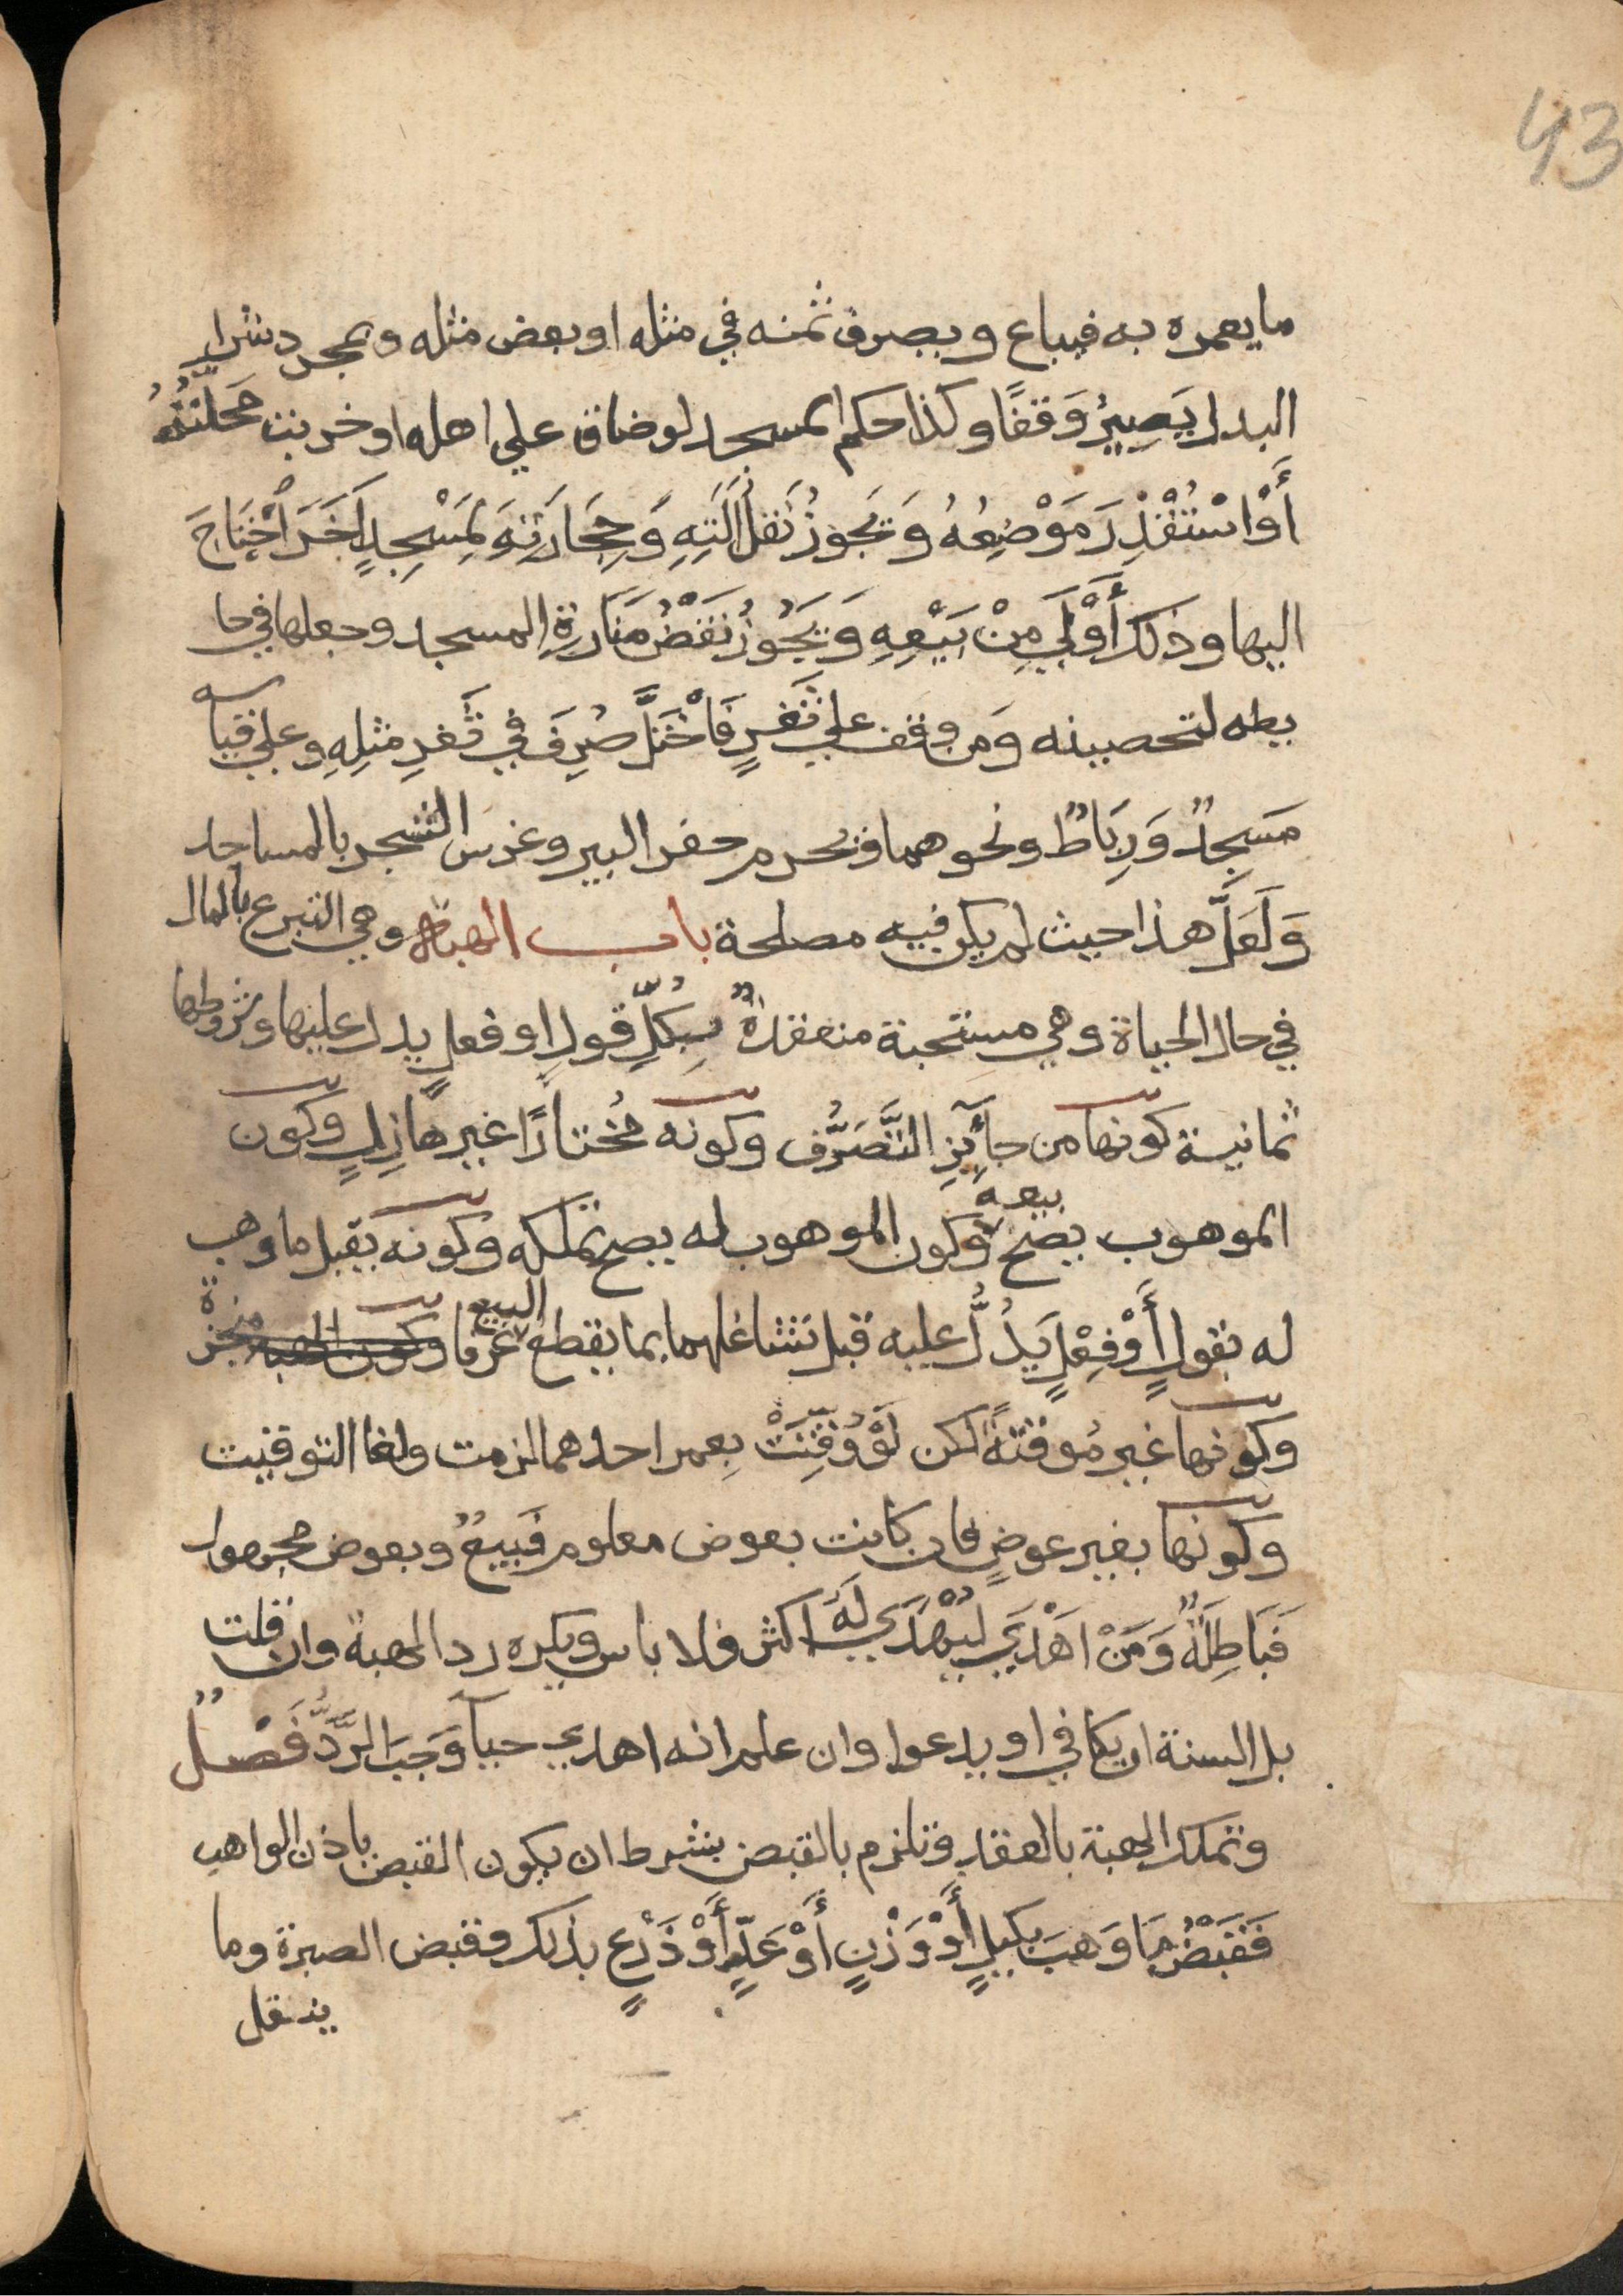 43
ما يعمره به فيباع ويصرف ثمنه في مثله او بعض مثله وبمجرد شراء
البدل يَصِيرُ وَقفًا وكذا حكم المسجد لوضاق علي اهله او خربت مَحلَّتُهُ
أَوْ اسْتُقْذِرَ مَوْضِعُهُ وَيَجُوزُ نَقْلُ آلَتِهِ وَحِجَارَتِهِ لِمَسْجِدٍ آخَرَ احْتَاجَ
اليها وذلك أَوْلَي مِنْ بَيْعِهِ وَيَجُوزُ نَقْضُ مَنَارَةِ المسجد وجعلها في حا
يطه لتحصينه وَمن وقف علي ثَغْرٍ فَاخْتَلَّ صُرِفَ في ثَغْرِ مثلِهِ وعلي قياسه
مَسجِدٌ وَرِبَاطٌ ونحوهما وَيحرم حفر البير وغرس الشجر بالمساجد
وَلَعَلَّ هذا حيث لم يكن فيه مصلحة باب الهبة وهي التبرع بالمال
في حال الحياة وهي مستحبة منعقدةٌ بِكُلِّ قولٍ او فعلٍ يدل عليها وشروطها
ثمانية كونها من جآئِزِ التَّصَرُّف وكونه مُختارًا غير هازِلٍ وكون
الموهوب يصح بيعه وكون الموهوب له يصح تملكه وكونه يقبل ما وهب
له بقولٍ أَوْ فِعْلٍ يَدُلُّ عليه قبل تشاغلهما بما يقطع البيع عرفا وكون الهبة منجزة
وكونها غير مُوقتةً لكن لَوْ وُقِّتَتْ بِعمر احدهما لزمت ولغا التوقيت
وكونها بغير عوضٍ فان كانت بعوض معلوم فَبيعٌ وبعوض مجهول
فَبَاطِلَةٌ وَمَنْ اهْدَي لِيُهْدَي لَهُ اكثر فلا باس ويكره رد الهبة وان قلت
بل السنة ان يكافي او يدعوا وان علم انه اهدي حيآ وَجَبَ الرَّدُّ فَصْلٌ
وتملك الهبة بالعقد وتلزم بالقبض بشرط ان يكون القبض باذن الواهب
فَقَبْضُ مَا وَهبَ بكيلٍ أَوْ وَزْنٍ أَوْ عَدٍّ أَوْ ذَرْعٍ بذلك وقبض الصبرة وما
ينقل